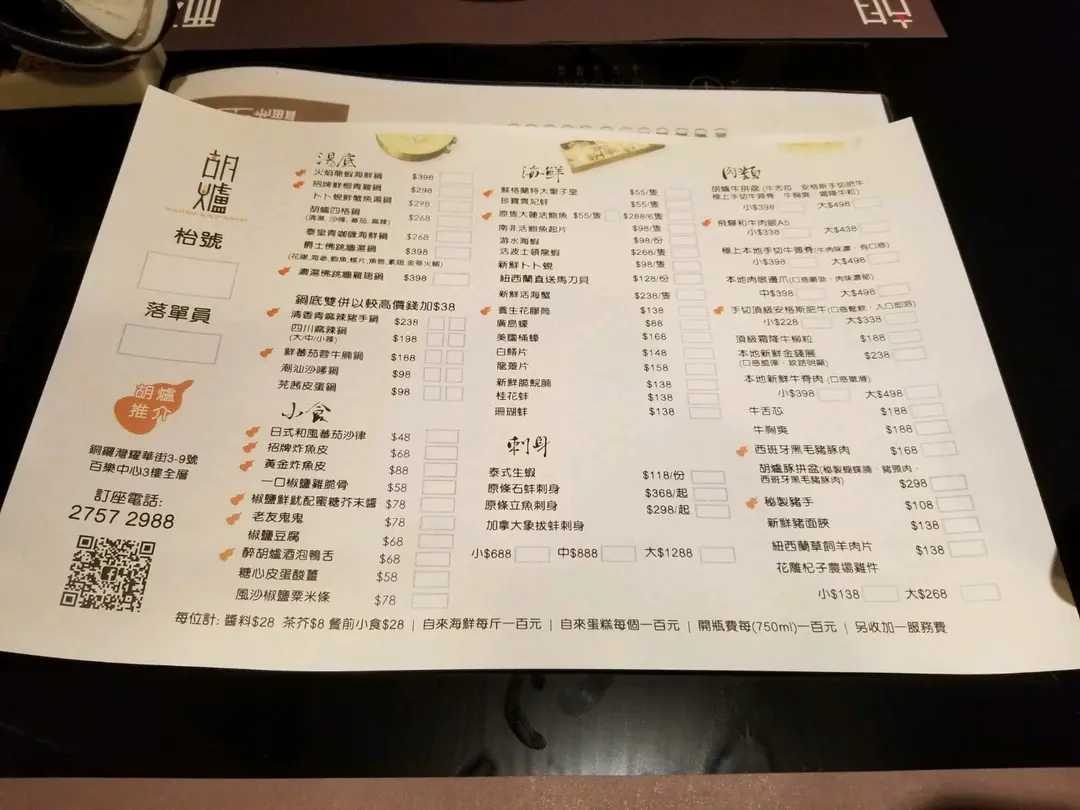 胡
爐
枱號
落單員
胡爐
推介
銅鑼灣耀華街3-9號
百樂中心3樓全層
訂座電話:
2757 2988
湯底
火焰龍蝦海鮮鍋 $398
招牌鮮椰青雞鍋 $298
卜卜蜆鮮蟹魚湯鍋 $298
胡爐四格鍋 $268
(清湯, 沙嗲, 番茄, 麻辣)
泰皇青咖喱海鮮鍋 $268
爵士佛跳牆湯鍋 $398
(花膠,海參,鮑魚,螺片,魚唇,素翅,金華火腿)
濃湯佛跳牆雞翅鍋 $398
鍋底雙併以較高價錢加$38
清香青麻辣豬手鍋 $238
四川麻辣鍋 $198
(大/中/小辣)
鮮蕃茄蓉牛腩鍋 $188
潮汕沙嗲鍋 $98
芫茜皮蛋鍋 $98
小食
日式和風蕃茄沙律 $48
招牌炸魚皮 $68
黃金炸魚皮 $88
一口椒鹽雞脆骨 $58
椒鹽鮮魷配蜜糖芥末醬 $78
老友鬼鬼 $78
椒鹽豆腐 $68
醉胡爐酒泡鴨舌 $68
糖心皮蛋酸薑 $58
風沙椒鹽粟米條 $78
海鮮
蘇格蘭特大聖子皇 $55/隻
珍寶貴妃蚌 $55/隻
原隻大蓮活鮑魚 $55/隻 $288/6隻
南非活鮑魚起片 $98/隻
游水海蝦 $98/份
活波士頓龍蝦 $268/隻
新鮮卜卜蜆 $98/隻
紐西蘭直送馬刀貝 $128/份
新鮮活海蟹 $238/隻
養生花膠筒 $138
廣島蠔 $88
美國桶蠔 $168
白鱔片 $148
龍躉片 $158
新鮮脆鯇腩 $138
桂花蚌 $138
珊瑚蚌 $138
刺身
泰式生蝦 $118/份
原條石蚌刺身 $368/起
原條立魚刺身 $298/起
加拿大象拔蚌刺身
小$688 中$888 大$1288
肉類
胡爐牛拼盆(牛舌芯 安格斯手切肥牛、
極上手切牛頸脊 牛胸爽 霜降牛和)
小$398 大$498
飛驒和牛肉眼A5
小$338 大$438
極上本地手切牛頸脊(牛肉味濃，有口感)
小$398 大$498
本地肉眼邊爪(口感嫩滑、肉味濃郁)
中$398 大$498
手切頂級安格斯肥牛(口感鬆軟，入口即溶)
小$228 大$338
頂級霜降牛柳粒 $188
本地新鮮金錢𦟌 $238
(口感脆彈，紋路明顯)
本地新鮮牛脊肉(口感嫩滑)
小$398 大$498
牛舌芯 $188
牛胸爽 $188
西班牙黑毛豬豚肉 $168
胡爐豚拼盆(秘製蝴蝶腩、豬頸肉、
西班牙黑毛豬豚肉) $298
秘製豬手 $108
新鮮豬面頰 $138
紐西蘭草飼羊肉片 $138
花雕杞子農場雞件
小$138 大$268
每位計: 醬料$28 茶芥$8 餐前小食$28 | 自來海鮮每斤一百元 | 自來蛋糕每個一百元 | 開瓶費每(750ml)一百元 | 另收加一服務費